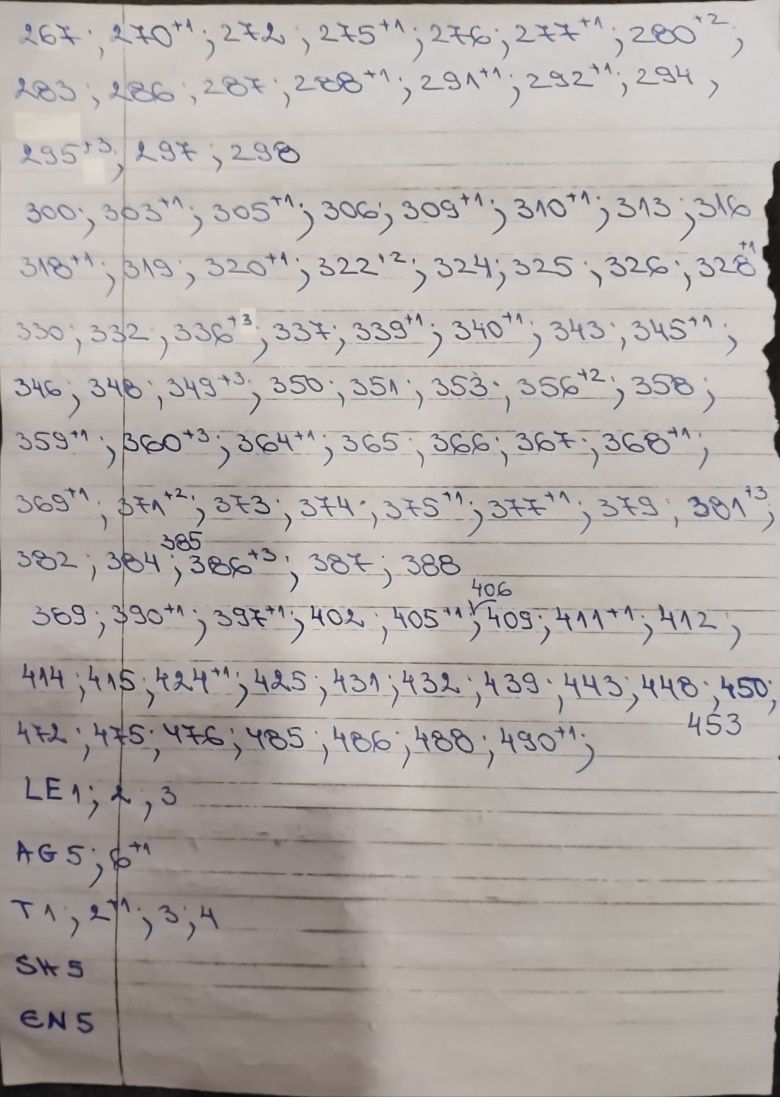 267; 270+1; 272; 275+1; 276; 277+1; 280+2;
283; 286; 287; 288+1; 291+1; 292+1; 294;
295+3; 297; 298
300; 303+1; 305+1; 306; 309+1; 310+1; 313; 316
318+1; 319; 320+1; 322+2; 324; 325; 326; 328+1
330; 332; 336+3; 337; 339+1; 340+1; 343; 345+1;
346; 348; 349+3; 350; 351; 353; 356+2; 358;
359+1; 360+3; 364+1; 365; 366; 367; 368+1;
369+1; 371+2; 373; 374; 375+1; 377+1; 379; 381+3;
385
382; 384; 386+3; 387; 388
406
389; 390+1; 397+1; 402; 405+1; 409; 411+1; 412;
414; 415; 424+1; 425; 431; 432; 439; 443; 448; 450;
453
472; 475; 476; 485; 486; 488; 490+1;
LE 1; 2; 3
AG 5; 6+1
T 1; 2+1; 3; 4
SH 5
EN 5